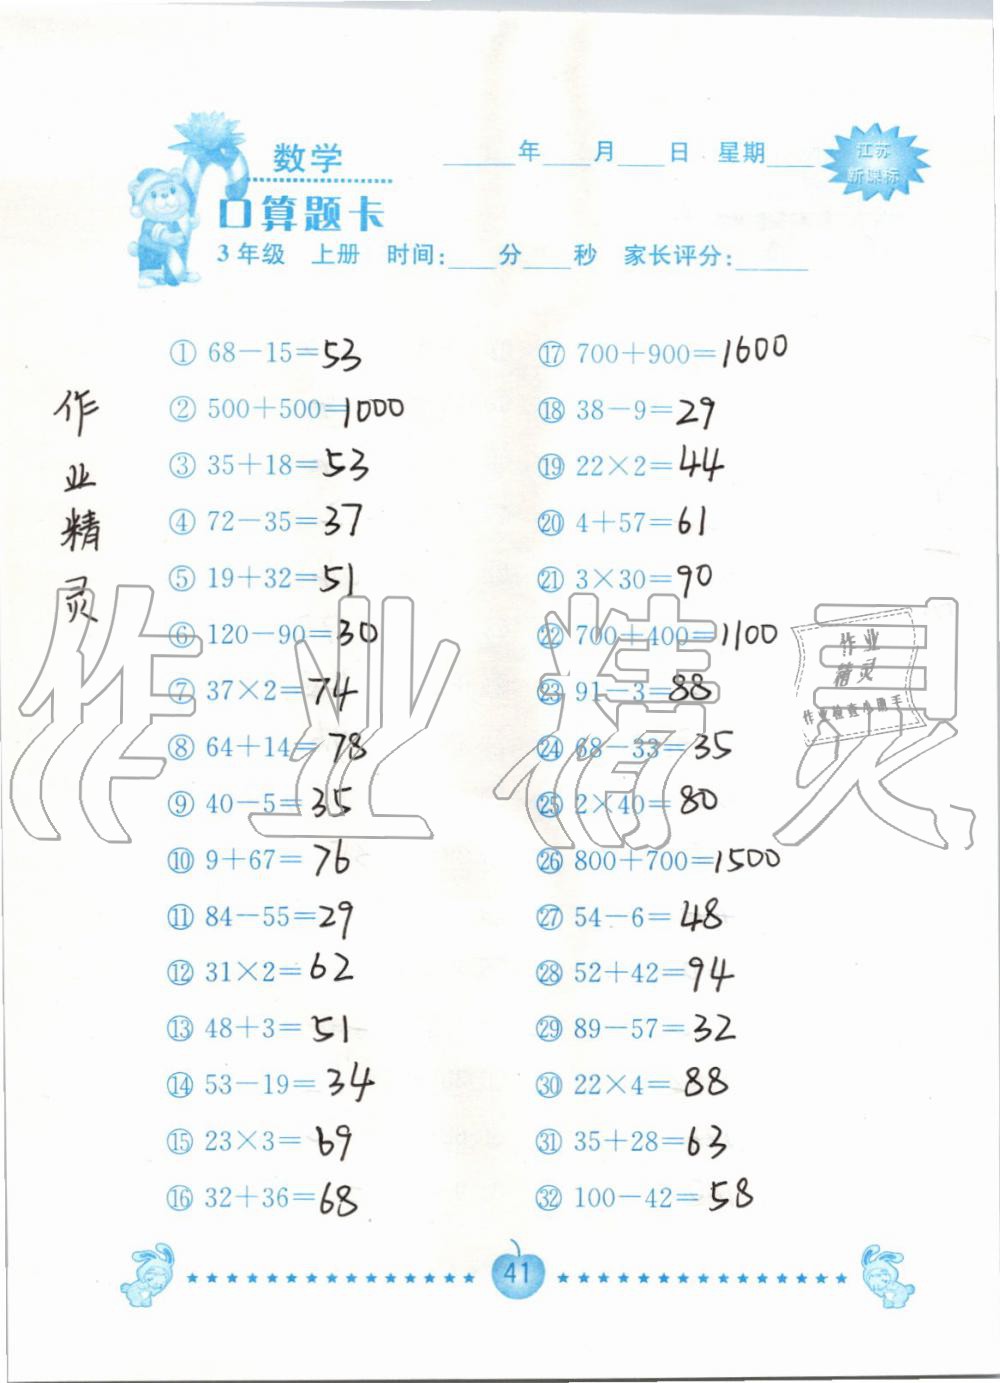 数学
____年____月____日 星期____
江苏
新课标
口算题卡
3年级 上册 时间:____分____秒 家长评分:____
作业精灵
① 68－15=53
② 500+500=1000
③ 35+18=53
④ 72－35=37
⑤ 19+32=51
⑥ 120－90=30
⑦ 37×2=74
⑧ 64+14=78
⑨ 40－5=35
⑩ 9+67=76
⑪ 84－55=29
⑫ 31×2=62
⑬ 48+3=51
⑭ 53－19=34
⑮ 23×3=69
⑯ 32+36=68
⑰ 700+900=1600
⑱ 38－9=29
⑲ 22×2=44
⑳ 4+57=61
㉑ 3×30=90
㉒ 700+400=1100
㉓ 91－3=88
㉔ 68－33=35
㉕ 2×40=80
㉖ 800+700=1500
㉗ 54－6=48
㉘ 52+42=94
㉙ 89－57=32
㉚ 22×4=88
㉛ 35+28=63
㉜ 100－42=58
作业精灵
作业
精灵
作业检查小助手
41